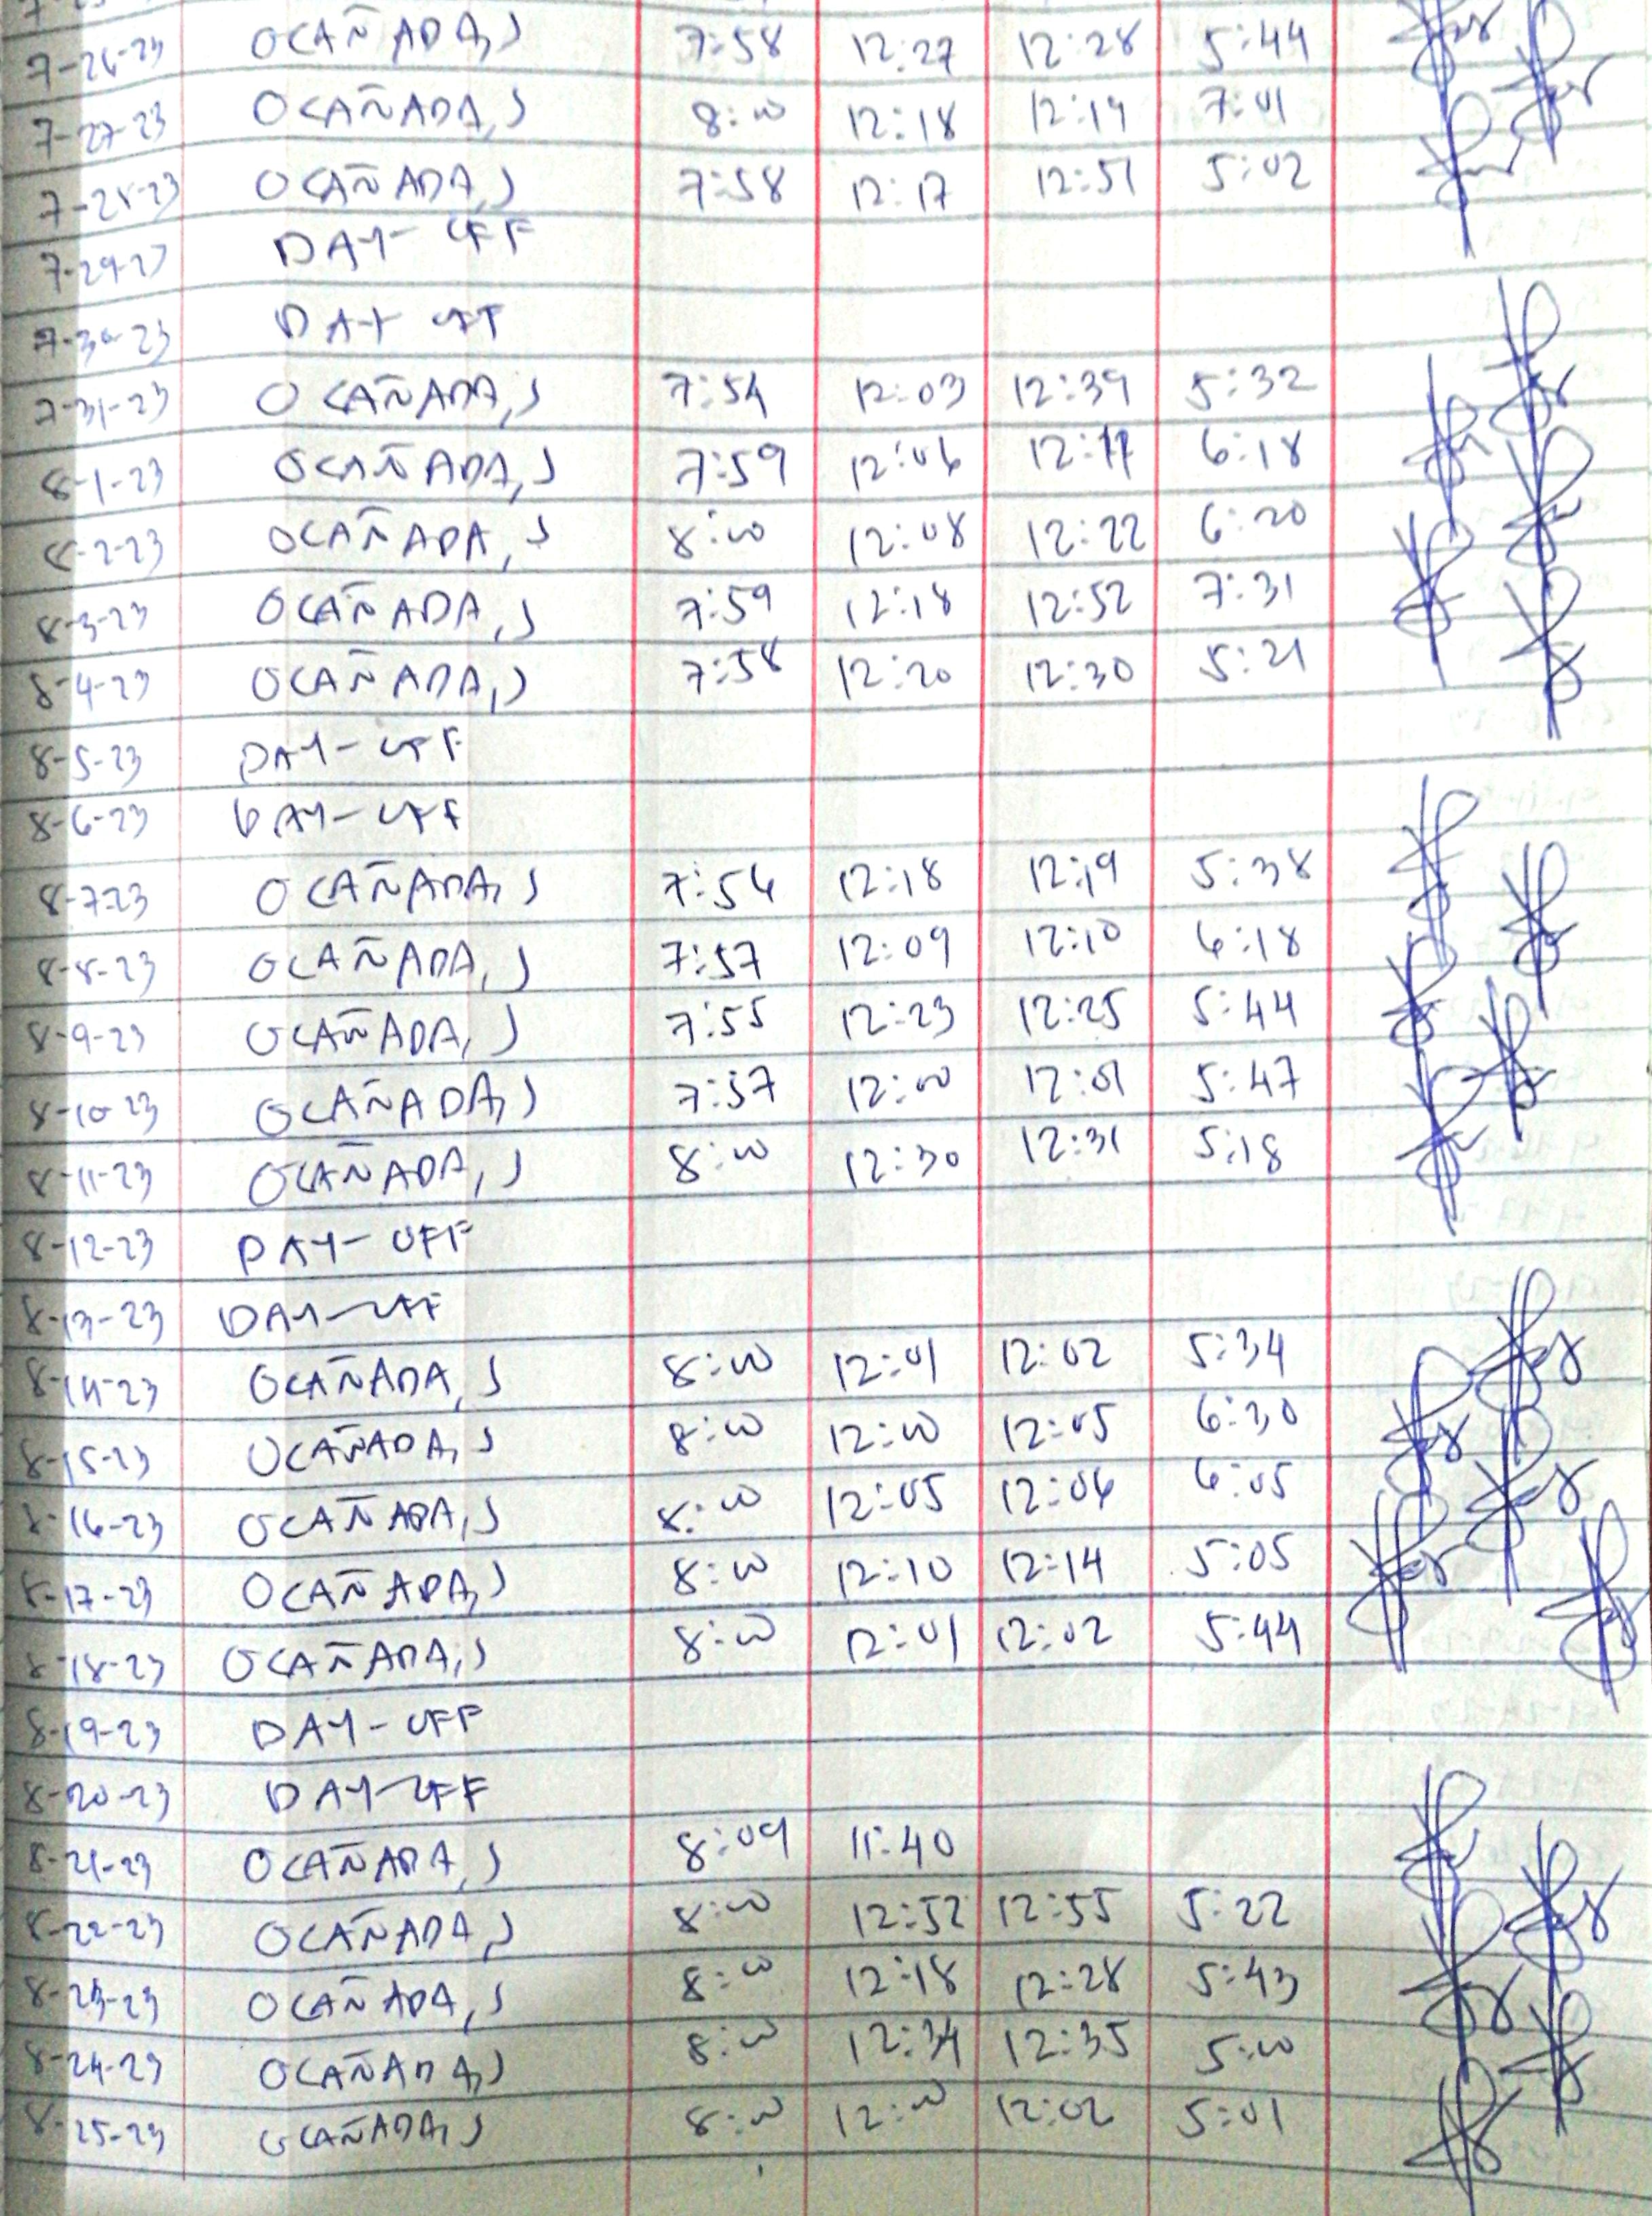 7-26-23 OCAÑADA, J 7:58 12:27 12:28 5:44
7-27-23 OCAÑADA, J 8:00 12:18 12:19 7:01
7-28-23 OCAÑADA, J 7:58 12:17 12:51 5:02
7-29-23 DAY-OFF
7-30-23 DAY OFF
7-31-23 OCAÑADA, J 7:54 12:03 12:39 5:32
8-1-23 OCAÑADA, J 7:59 12:06 6:18
8-2-23 OCAÑADA, J 8:00 12:08 12:22 6:20
8-3-23 OCAÑADA, J 7:59 12:18 12:52 7:31
8-4-23 OCAÑADA, J 7:58 12:20 12:30 5:21
8-5-23 DAY-OFF
8-6-23 DAY-OFF
8-7-23 OCAÑADA, J 7:56 12:18 12:19 5:38
8-8-23 OCAÑADA, J 7:57 12:09 12:10 6:18
8-9-23 OCAÑADA, J 7:55 12:23 12:25 5:44
8-10-23 OCAÑADA, J 7:57 12:00 12:01 5:47
8-11-23 OCAÑADA, J 8:00 12:30 12:31 5:18
8-12-23 DAY-OFF
8-13-23 DAY-OFF
8-14-23 OCAÑADA, J 8:00 12:01 12:02 5:34
8-15-23 OCAÑADA, J 8:00 12:00 12:05 6:30
8-16-23 OCAÑADA, J 8:00 12:05 12:06 6:05
8-17-23 OCAÑADA, J 8:00 12:10 12:14 5:05
8-18-23 OCAÑADA, J 8:00 12:01 12:02 5:44
8-19-23 DAY-OFF
8-20-23 DAY-OFF
8-21-23 OCAÑADA, J 8:09 11:40
8-22-23 OCAÑADA, J 8:00 12:52 12:55 5:22
8-23-23 OCAÑADA, J 8:00 12:18 12:28 5:43
8-24-23 OCAÑADA, J 8:00 12:34 12:35 5:00
8-25-23 OCAÑADA, J 8:00 12:00 12:02 5:01